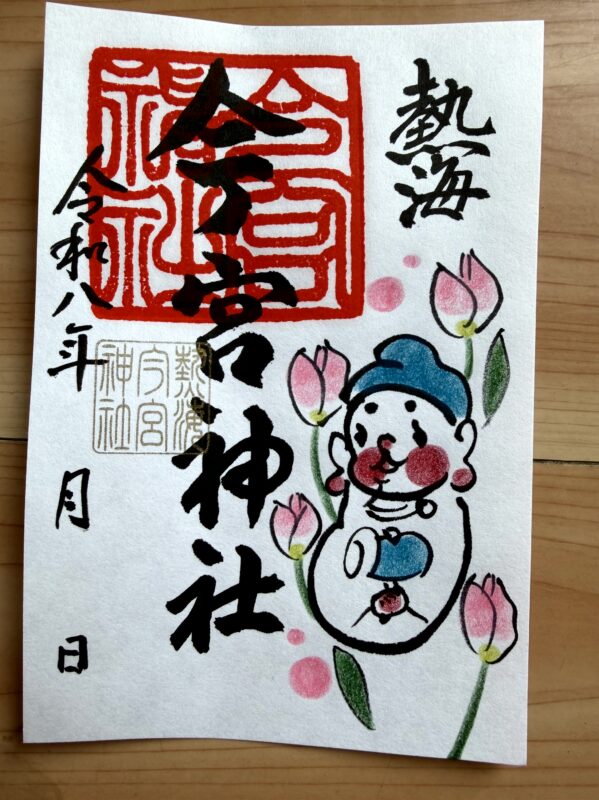 熱海
今宮神社
令和八年 月 日
熱海
今宮
神社